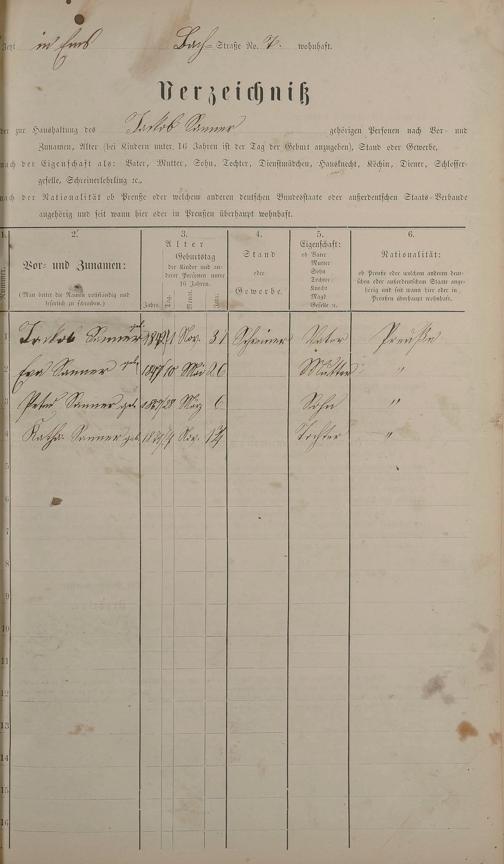 in Ems Bach= Straße No. 7. wohnhaft.
Verzeichniß
der zur Haushaltung des Jackob Sanner gehörigen Personen nach Vor- und
Zunamen, Alter (bei Kindern unter 16 Jahren ist der Tag der Geburt anzugeben), Stand oder Gewerbe,
nach der Eigenschaft als: Vater, Mutter, Sohn, Tochter, Dienstmädchen, Hausknecht, Köchin, Diener, Schlosser-
geselle, Schreinerlehrling ꝛc.,
nach der Nationalität ob Preuße oder welchem anderen deutschen Bundesstaate oder außerdeutschen Staats-Verbande
angehörig und seit wann hier oder in Preußen überhaupt wohnhaft.
1. 2. 3. 4. 5. 6.
Nummer.
Vor- und Zunamen:
(Man bittet die Namen vollständig und
leserlich zu schreiben.)
Alter
Geburtstag
der Kinder und an-
derer Personen unter
16 Jahren.
Jahr. Tag. Monat. Jahr.
Stand
oder
Gewerbe.
Eigenschaft:
ob Vater
Mutter
Sohn
Tochter
Knecht
Magd
Geselle ꝛc.
Nationalität:
ob Preuße oder welchem anderen deut-
schen oder außerdeutschen Staate ange-
hörig und seit wann hier oder in
Preußen überhaupt wohnhaft.
1 Jackob Sanner geb. Nov. 31 Schreiner Vater Preuße
2 Eva Sanner geb. Mai 26 Mutter "
3 Peter Sanner geb. März 6 Sohn "
4 Katha. Sanner geb. Nov. Tochter "
5
6
7
8
9
10
11
12
13
14
15
16